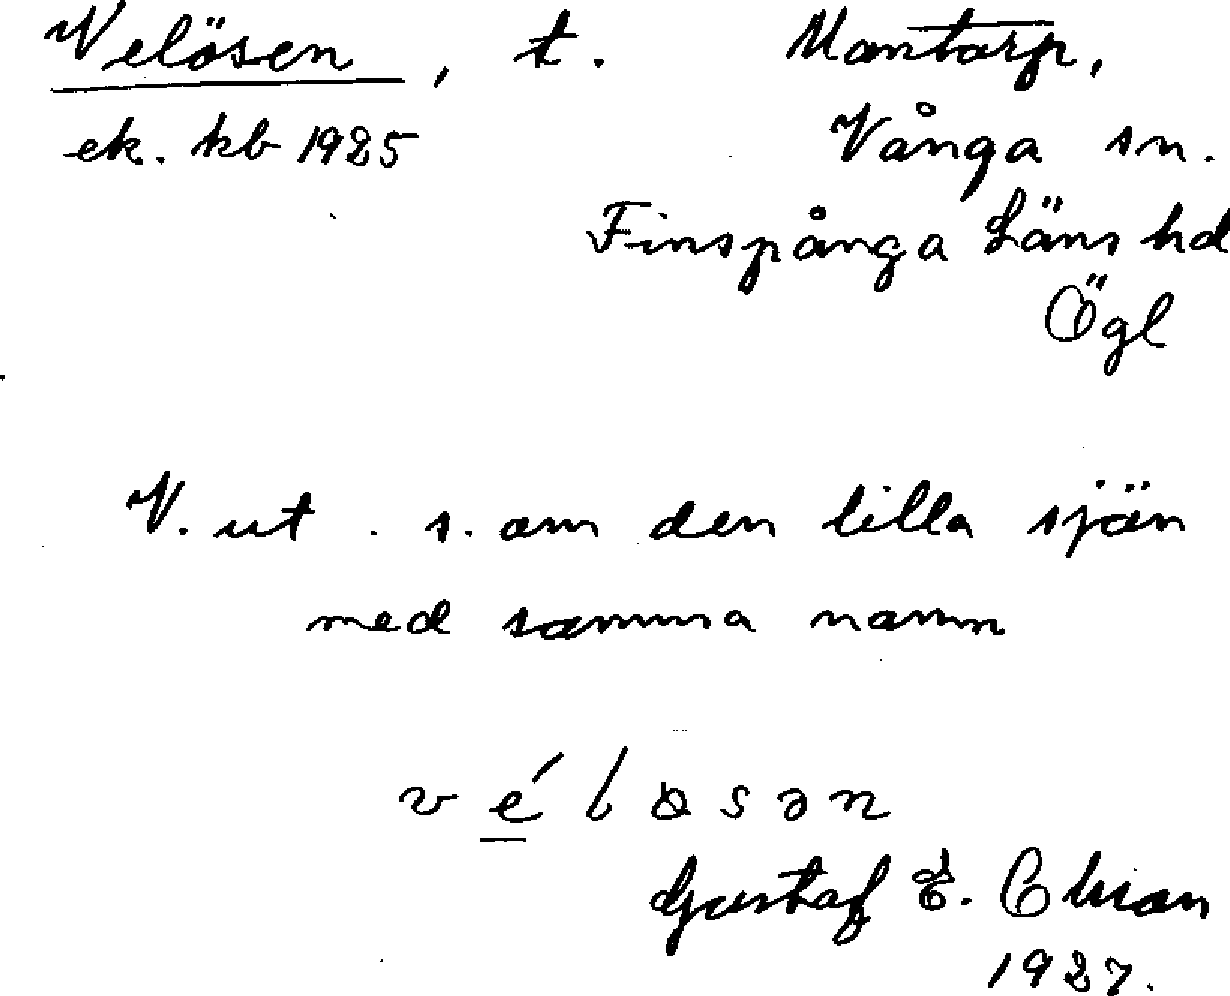 Velösen, t. Mantorp,
ek. kb 1925 Vånga sn.
Finspånga Läns hd
Ögl
V. ut. s. om den lilla sjön
med samma namn
véløsən
Gustaf E.
1927.